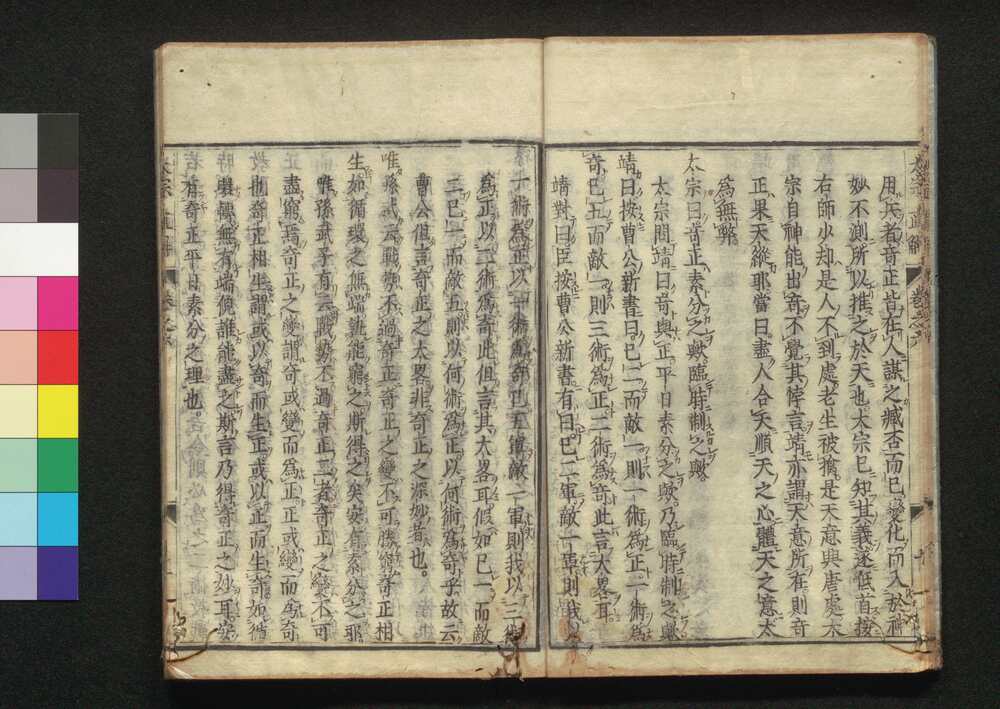 用兵者奇正皆在人謀之臧否而已變化而入於神
妙不測所以推之於天也太宗已知其義遂低首按
右師少却是人不到處老生被擒是天意與唐處太
宗自神能出奇不覺其悼言靖亦謂天意所在則奇
正果天縱耶當日盡人合天順天之心體天之意太
為無弊
太宗曰奇正素分之歟臨時制之歟
太宗問靖曰奇與正平日素分之歟乃臨時制之歟
靖曰按曹公新書曰己二而敵一則一術為正一術為
奇己五而敵一則三術為正二術為奇此言大畧耳
靖對曰臣按曹公新書有曰己二軍敵一軍則我以
一術為正以一術為奇己五軍敵一軍則我以三術
為正以二術為奇此但言其大畧耳假如己一而敵
二己一而敵五則以何術為正以何術為奇乎故云
曹公但言奇正之大畧非奇正之深妙者也
唯孫武云戰勢不過奇正奇正之變不可勝窮奇正相
生如循環之無端孰能窮之斯得之矣安有素分之耶
唯孫武子有云戰勢不過奇正二者奇正之變不可
盡窮焉奇正之變謂奇或變而為正正或變而為奇
也奇正相生謂或以奇而生正或以正而生奇如循
環無有端倪誰能盡之斯言乃得奇正之妙耳安
有奇正平日素分之理也